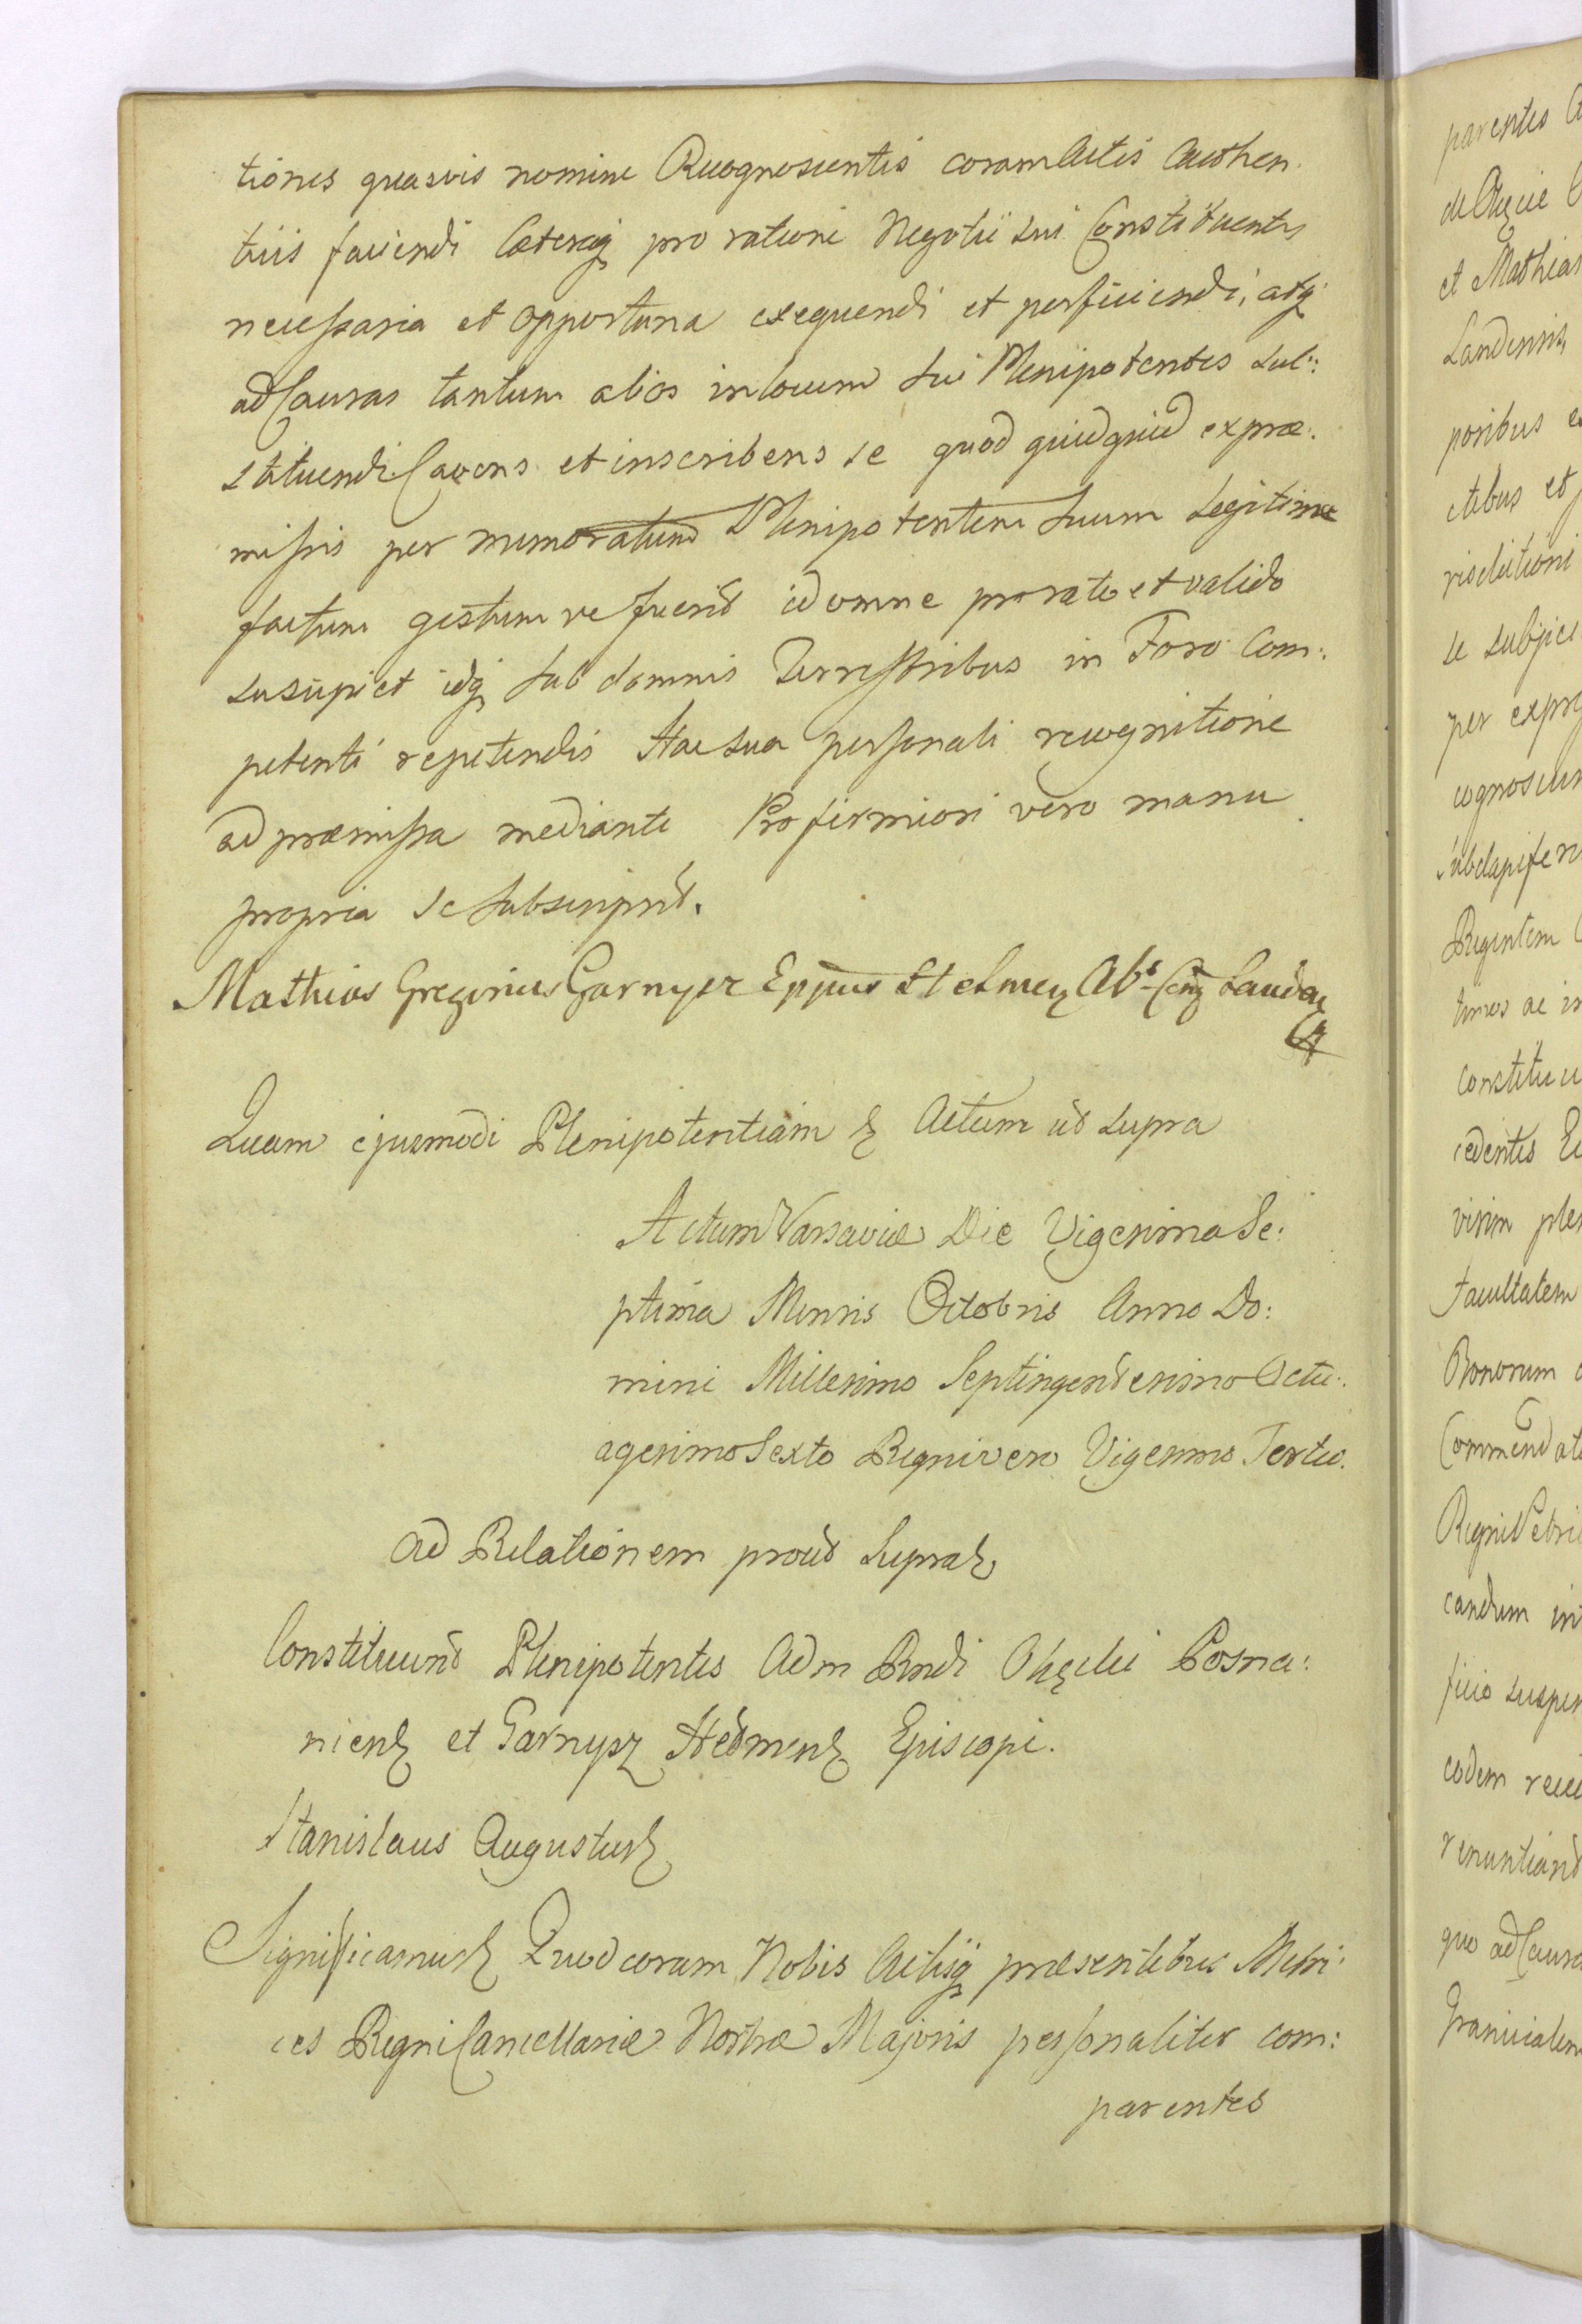 tiones quasvis nomine Recognoscentis coram Actis Authen.
ticis faciendi Caeteraq pro ratione Negotii sui Constituentis
necessaria et opportuna exequendi et perficiendi, atq
ad Causas tantum alios in locum sui Plenipotentes sub:
stituendi Cavens et inscribens se quod quidquid ex prae:
missis per memoratum Plenipotentem suum legitime
factum gestumve fuerit id omne pro rato et valido
suscipiet idq sub damnis Terrestribus in Foro Com:
petenti repetendis Hac sua personali recognitione
ad praemissa mediante Pro firmiori vero manu
propria se subscripsit.
Mathias Gregorius Garnysz Eppus
Quam ejusmodi Plenipotentiam & Actum ut supra
Actum Varsaviae Die Vigesima Se:
ptima Mensis Octobris Anno Do:
mini Millesimo Septingentesimo Octu:
agesimo Sexto Regni vero Vigesimo Tertio.
Ad Relationem prout supra &
Constituunt Plenipotentes Adm Rndi Okęcki Posna:
niens et Garnysz Helmens Episcopi.
Stanislaus Augustus &
Significamus & Quod coram Nobis Actisq praesentibus Metri:
ces Regni Cancellariae Nostrae Majoris personaliter com:
parentes
parentes
et Mathias
Landensis,
poribus
ctibus et
se subjici
per expre
cognoscun
subdapifer
Regentem
timos ac in
constitu
cedentes
visim ple
Facultatem
Bonorum
Commendat
Regni Petri
candum in
ficio suspen
eodem
renuntiand
quo ad Causa